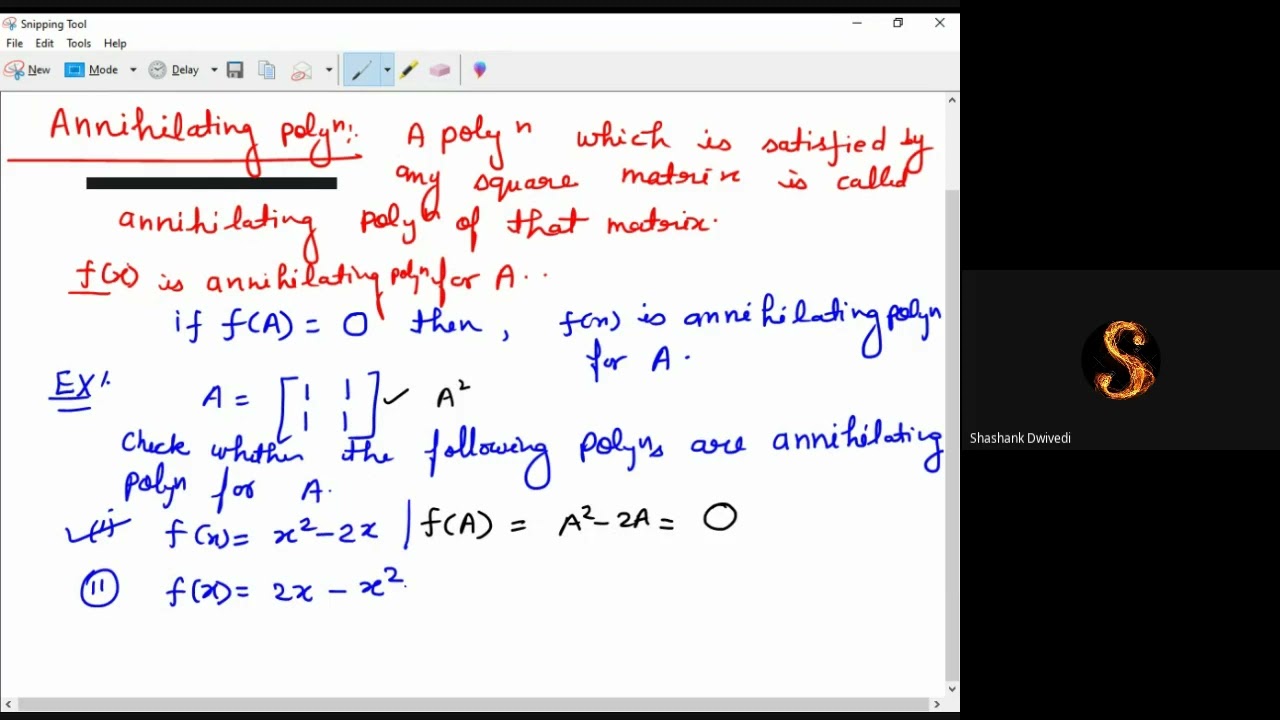 Snipping Tool
File Edit Tools Help
New Mode Delay
Annihilating polyⁿ:. A polyⁿ which is satisfied by
any square matrix is called
annihilating polyⁿ of that matrix.
f(x) is annihilating polyn for A..
if f(A) = 0 then, f(x) is annihilating polyn
for A.
EX:
A = [1 1 1 1] ✓ A²
Check whether the following polyns are annihilating
polyn for A.
✓(i) f(x) = x² - 2x | f(A) = A² - 2A = 0
(ii) f(x) = 2x - x².
S
Shashank Dwivedi